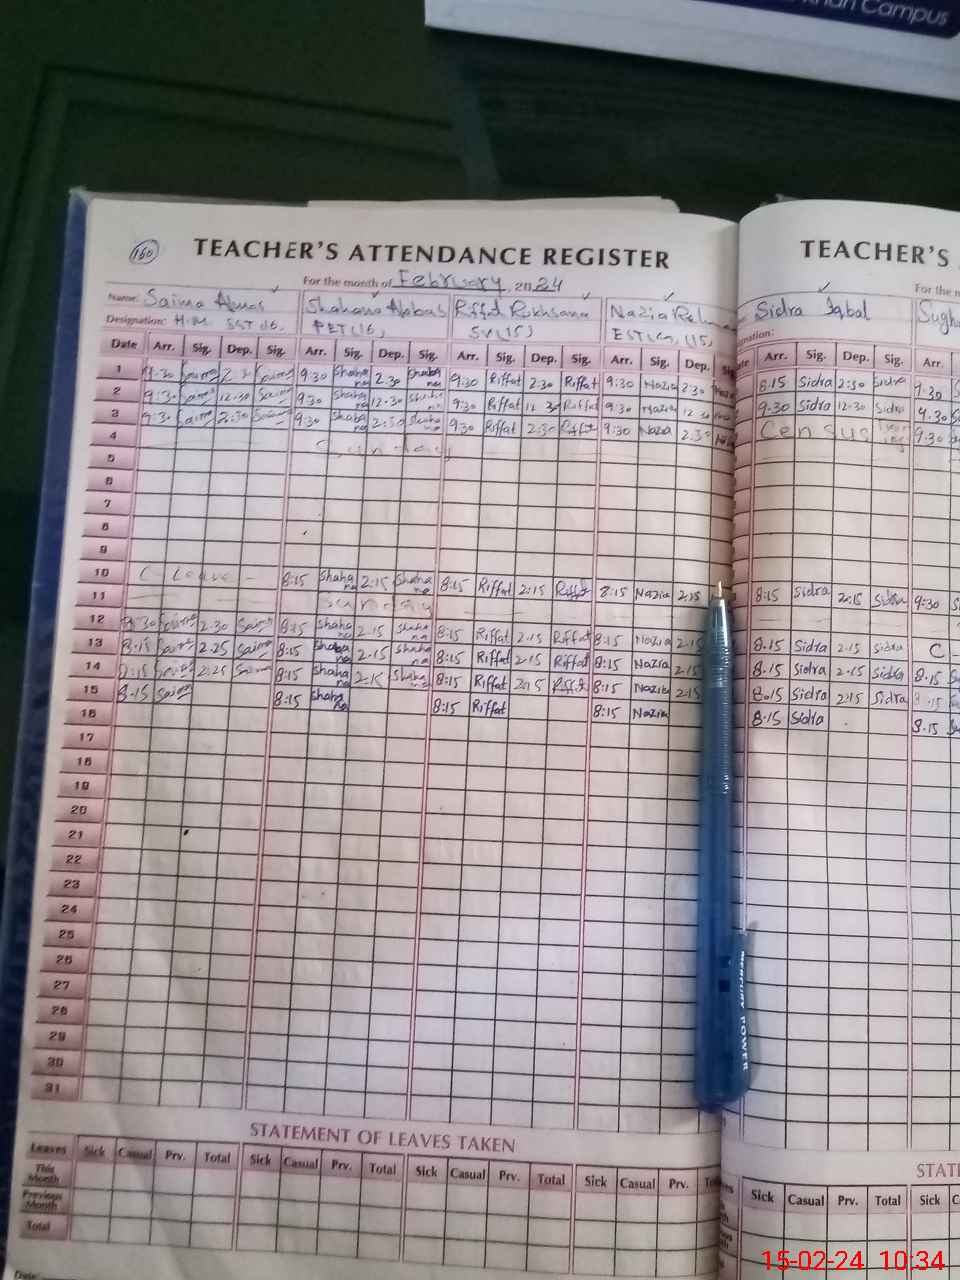 Khan Campus
160
TEACHER'S ATTENDANCE REGISTER
For the month of February, 2024
Name: Saima Shahana Abbas Riffat Rukhsana Nazia
Designation: H.M SST 16, PET (16) SV (15) EST (15)
Date Arr. Sig. Dep. Sig. Arr. Sig. Dep. Sig. Arr. Sig. Dep. Sig. Arr. Sig. Dep.
1 9:30 Saima 2:30 Saima 9:30 Shahana 2:30 Shahana 9:30 Riffat 2:30 Riffat 9:30 Nazia 2:30
2 9:30 Saima 12:30 Saima 9:30 Shahana 12:30 Shahana 9:30 Riffat 12:30 Riffat 9:30 Nazia 12:30
3 9:30 Saima 2:30 Saima 9:30 Shahana 2:30 Shahana 9:30 Riffat 2:30 Riffat 9:30 Nazia 2:30
4 Sunday
5
6
7
8
9
10 C - Leave - 8:15 Shahana 2:15 Shahana 8:15 Riffat 2:15 Riffat 8:15 Nazia 2:15
11 Sunday
12 8:30 Saima 2:30 Saima 8:15 Shahana 2:15 Shahana 8:15 Riffat 2:15 Riffat 8:15 Nazia 2:15
13 8:15 Saima 2:25 Saima 8:15 Shahana 2:15 Shahana 8:15 Riffat 2:15 Riffat 8:15 Nazia 2:15
14 8:15 Saima 2:25 Saima 8:15 Shahana 2:15 Shahana 8:15 Riffat 2:15 Riffat 8:15 Nazia 2:15
15 8:15 Saima 8:15 Shahana 8:15 Riffat 8:15 Nazia
16
17
18
19
20
21
22
23
24
25
26
27
28
29
30
31
STATEMENT OF LEAVES TAKEN
Leaves Sick Casual Prv. Total Sick Casual Prv. Total Sick Casual Prv. Total Sick Casual Prv.
This Month
Previous Month
Total
Date:
TEACHER'S
For the
Sidra Iqbal
Arr. Sig. Dep. Sig. Arr.
8:15 Sidra 2:30 Sidra 9:30
9:30 Sidra 12:30 Sidra 9:30
Census 9:30
8:15 Sidra 2:15 Sidra 9:30
8:15 Sidra 2:15 Sidra C -
8:15 Sidra 2:15 Sidra 8:15
8:15 Sidra 2:15 Sidra 8:15
8:15 Sidra 8:15
Sick Casual Prv. Total Sick
MERCURY POWER
15-02-24 10:34